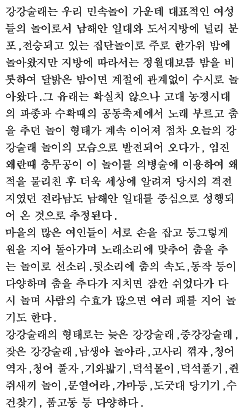 강강술래는 우리 민속놀이 가운데 대표적인 여성
들의 놀이로서 남해안 일대와 도서지방에 널리 분
포,전승되고 있는 집단놀이로 주로 한가위 밤에
놀아왔지만 지방에 따라서는 정월대보름 밤을 비
롯하여 달밝은 밤이면 계절에 관계없이 수시로 놀
아왔다.그 유래는 확실치 않으나 고대 농경시대
의 파종과 수확때의 공동축제에서 노래 부르고 춤
을 추던 놀이 형태가 계속 이어져 점차 오늘의 강
강술래 놀이의 모습으로 발전되어 오다가, 임진
왜란때 충무공이 이 놀이를 의병술에 이용하여 왜
적을 물리친 후 더욱 세상에 알려져 당시의 격전
지였던 전라남도 남해안 일대를 중심으로 성행되
어 온 것으로 추정된다.
마을의 많은 여인들이 서로 손을 잡고 둥그렇게
원을 지어 돌아가며 노래소리에 맞추어 춤을 추
는 놀이로 선소리.뒷소리에 춤의 속도,동작 등이
다양하며 춤을 추다가 지치면 잠깐 쉬었다가 다
시 놀며 사람의 수효가 많으면 여러 패를 지어 놀
기도 한다.
강강술래의 형태로는 늦은 강강술래,중강강술래,
잦은 강강술래,남생아 놀아라,고사리 꺾자,청어
엮자,청어 풀자,기와밟기,덕석몰이,덕석풀기,쥔
쥐새끼 놀이,문열어라,가마등,도굿대 당기기,수
건찾기, 품고동 등 다양하다.